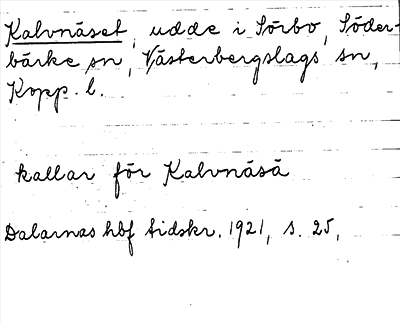 Kalvnäset, udde i Sörbo, Söder-
bärke sn, Västerbergslags sn,
Kopp. l.
kallar för Kalvnäsä
Dalarnas hbf tidskr. 1921, s. 25,